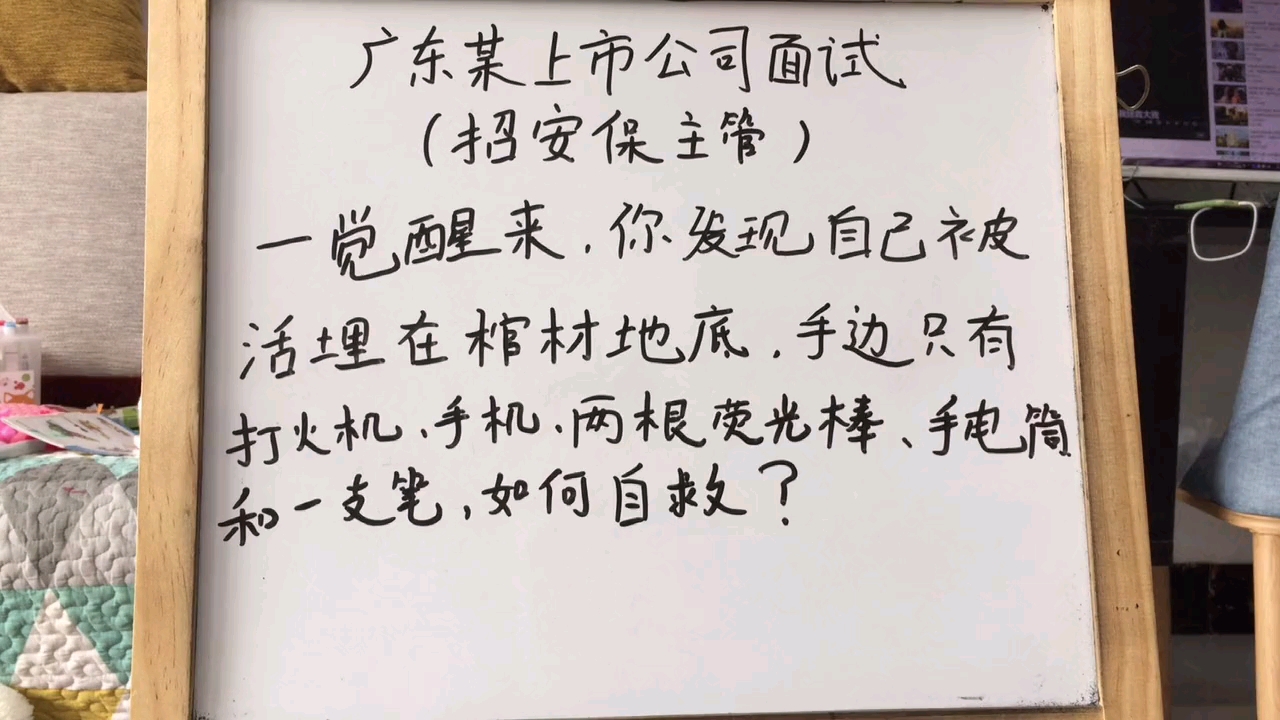 广东某上市公司面试
（招安保主管）
一觉醒来，你发现自己被
活埋在棺材地底，手边只有
打火机、手机、两根荧光棒、手电筒
和一支笔，如何自救？